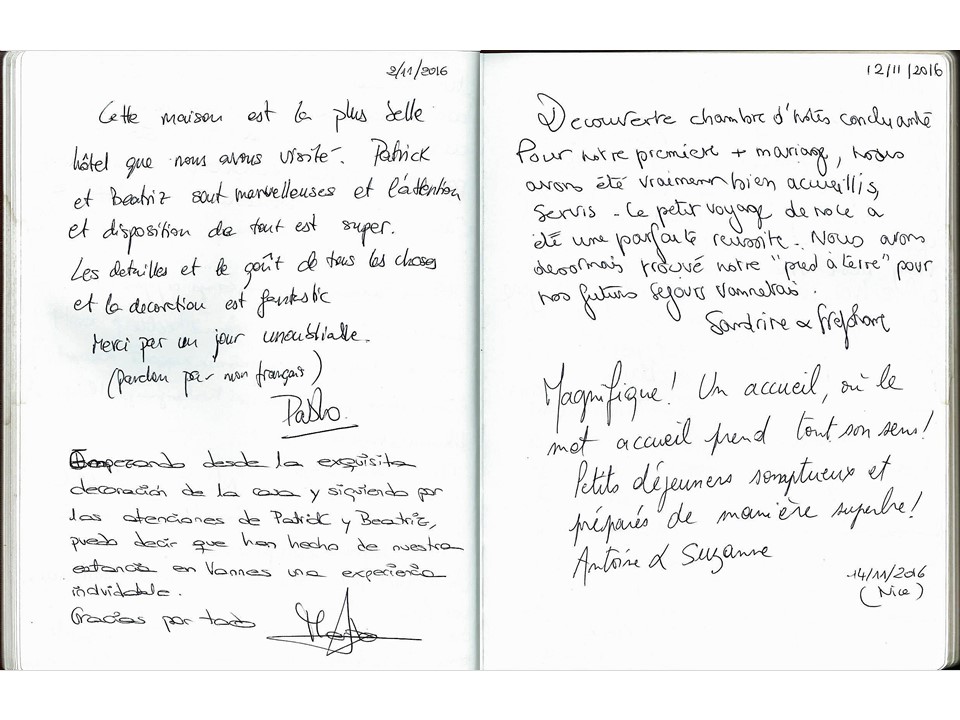 2/11/2016
Cette maison est la plus belle
hôtel que nous avons visité. Patrick
et Beatriz sont merveilleuses et l'attention
et disposition de tout est super.
Les detailles et le goût de tous les choses
et la decoration est fantastic
Merci par un jour inoubliable.
(Pardon par mon français)
Pablo.
desde la exquisita
decoración de la casa y siguiendo por
las atenciones de Patrick y Beatriz,
puedo decir que han hecho de nuestra
estancia en Vannes una experiencia
inolvidable.
Gracias por todo
12/11/2016
Decouverte chambre d'hôtes concluante
Pour notre premiere + mariage, nous
avons été vraiment bien accueillis,
servis - Ce petit voyage de noce a
été une parfaite reussite. Nous avons
desormais trouvé notre "pied à terre" pour
nos futurs sejours vannetais.
Sandrine & Stéphane
Magnifique! Un accueil, où le
mot accueil prend tout son sens!
Petits déjeuners somptueux et
préparés de manière superbe!
Antoine & Suzanne
14/11/2016
(Nice)